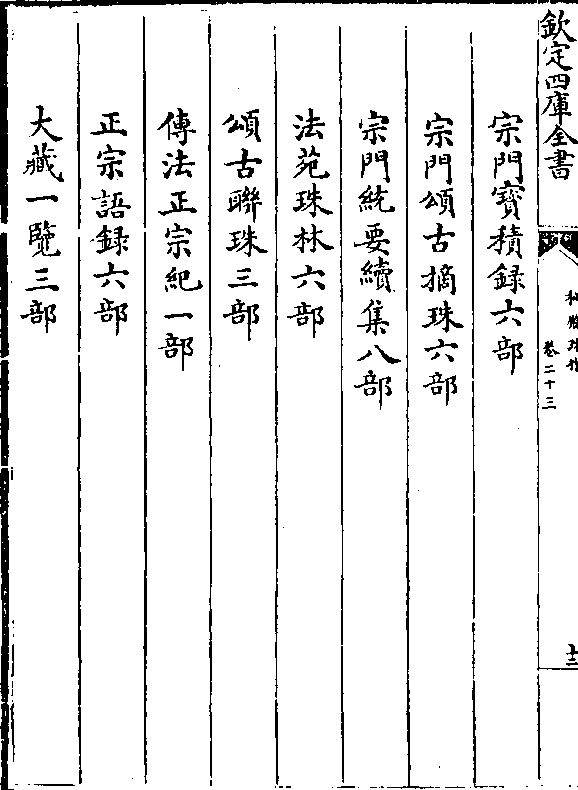 欽定四庫全書
卷二十三
十三
宗門寳積録六部
宗門頌古摘珠六部
宗門統要續集八部
法苑珠林六部
頌古聯珠三部
傳法正宗紀一部
正宗語録六部
大藏一覽三部